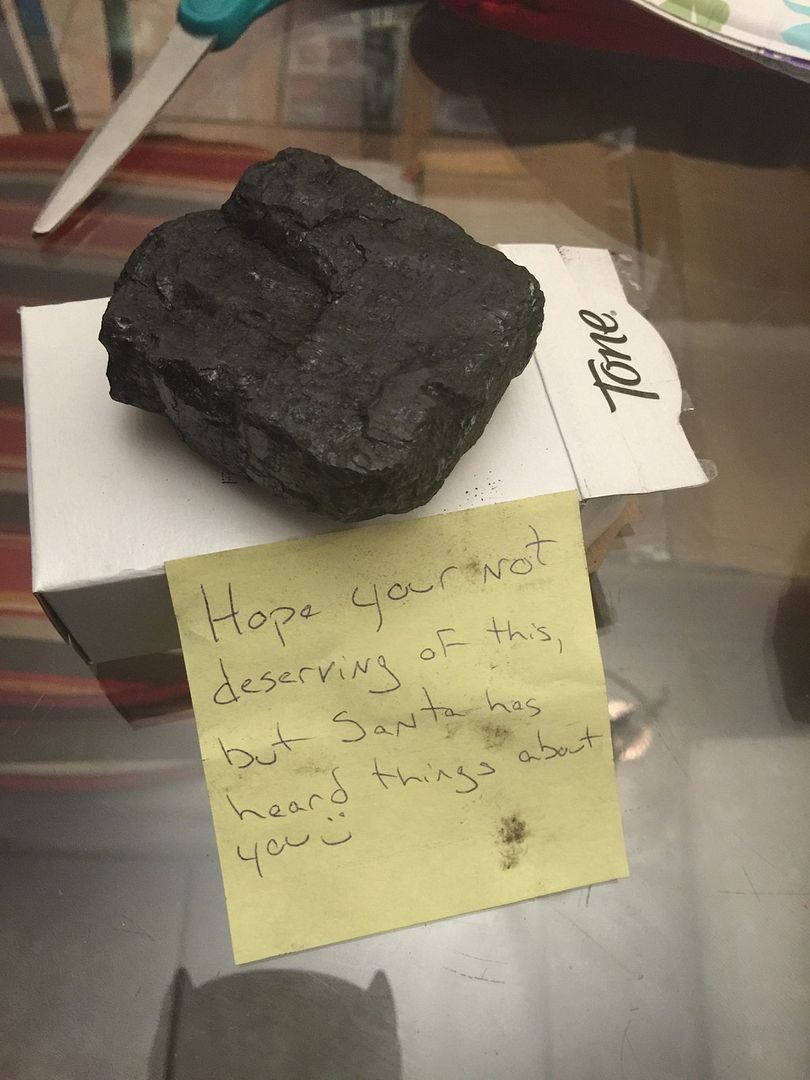 Tone.
Hope your not
deserving of this,
but Santa has
heard things about
you :)